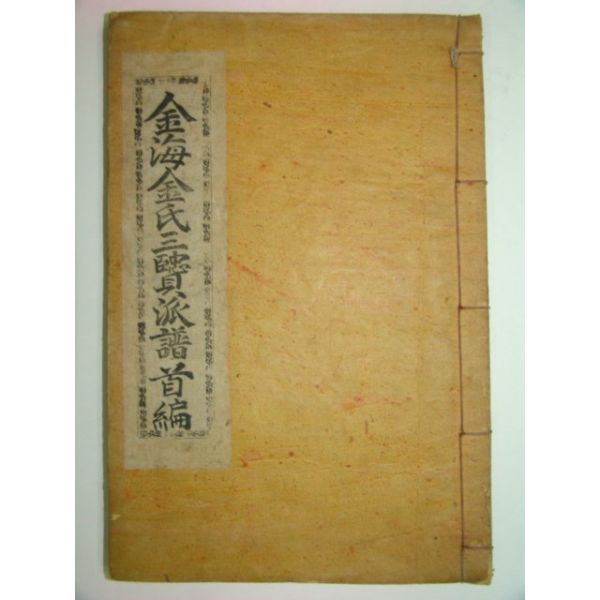 金海金氏三賢派譜 首編